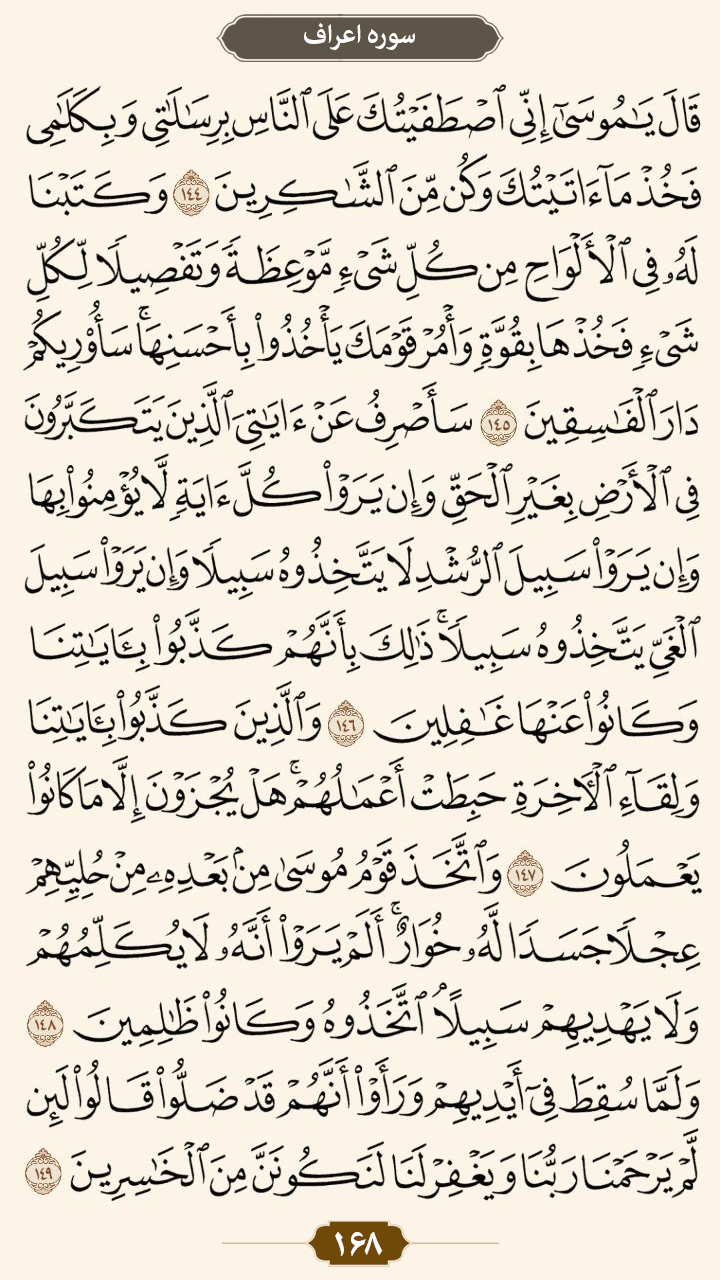 سوره اعراف
قَالَ يَـٰمُوسَىٰٓ إِنِّى ٱصۡطَفَيۡتُكَ عَلَى ٱلنَّاسِ بِرِسَـٰلَـٰتِى وَبِكَلَـٰمِى
فَخُذۡ مَآ ءَاتَيۡتُكَ وَكُن مِّنَ ٱلشَّـٰكِرِينَ ١٤٤ وَكَتَبۡنَا
لَهُۥ فِى ٱلۡأَلۡوَاحِ مِن كُلِّ شَىۡءٍ مَّوۡعِظَةً وَتَفۡصِيلًا لِّكُلِّ
شَىۡءٍ فَخُذۡهَا بِقُوَّةٍ وَأۡمُرۡ قَوۡمَكَ يَأۡخُذُواْ بِأَحۡسَنِهَاۚ سَأُوْرِيكُمۡ
دَارَ ٱلۡفَـٰسِقِينَ ١٤٥ سَأَصۡرِفُ عَنۡ ءَايَـٰتِىَ ٱلَّذِينَ يَتَكَبَّرُونَ
فِى ٱلۡأَرۡضِ بِغَيۡرِ ٱلۡحَقِّ وَإِن يَرَوۡاْ كُلَّ ءَايَةٍ لَّا يُؤۡمِنُواْ بِهَا
وَإِن يَرَوۡاْ سَبِيلَ ٱلرُّشۡدِ لَا يَتَّخِذُوهُ سَبِيلًا وَإِن يَرَوۡاْ سَبِيلَ
ٱلۡغَىِّ يَتَّخِذُوهُ سَبِيلًاۚ ذَٰلِكَ بِأَنَّهُمۡ كَذَّبُواْ بِـَٔايَـٰتِنَا
وَكَانُواْ عَنۡهَا غَـٰفِلِينَ ١٤٦ وَٱلَّذِينَ كَذَّبُواْ بِـَٔايَـٰتِنَا
وَلِقَآءِ ٱلۡأٓخِرَةِ حَبِطَتۡ أَعۡمَـٰلُهُمۡۚ هَلۡ يُجۡزَوۡنَ إِلَّا مَا كَانُواْ
يَعۡمَلُونَ ١٤٧ وَٱتَّخَذَ قَوۡمُ مُوسَىٰ مِنۢ بَعۡدِهِۦ مِنۡ حُلِيِّهِمۡ
عِجۡلًا جَسَدًا لَّهُۥ خُوَارٌۚ أَلَمۡ يَرَوۡاْ أَنَّهُۥ لَا يُكَلِّمُهُمۡ
وَلَا يَهۡدِيهِمۡ سَبِيلًاۘ ٱتَّخَذُوهُ وَكَانُواْ ظَـٰلِمِينَ ١٤٨
وَلَمَّا سُقِطَ فِىٓ أَيۡدِيهِمۡ وَرَأَوۡاْ أَنَّهُمۡ قَدۡ ضَلُّواْ قَالُواْ لَئِن
لَّمۡ يَرۡحَمۡنَا رَبُّنَا وَيَغۡفِرۡ لَنَا لَنَكُونَنَّ مِنَ ٱلۡخَـٰسِرِينَ ١٤٩
۱۶۸